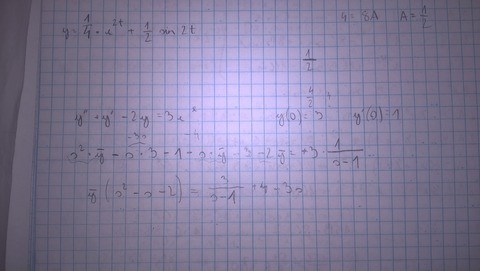 y = 1/4 · e^2t + 1/2 sin 2t
4 = 8A A = 1/2
1/2
4/2
y'' + y' - 2y = 3e^x y(0) = 3 y'(0) = 1
-3s -4
s² · ȳ - s · 3 - 1 - s · ȳ - 3 - 2ȳ = +3 · 1/(s-1)
ȳ(s² - s - 2) = 3/(s-1) + 4 - 3s